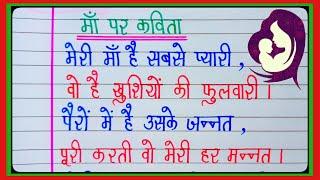 माँ पर कविता
मेरी माँ है सबसे प्यारी ,
वो है खुशियों की फुलवारी ।
पैरों में है उसके जन्नत ,
पूरी करती वो मेरी हर मन्नत ।